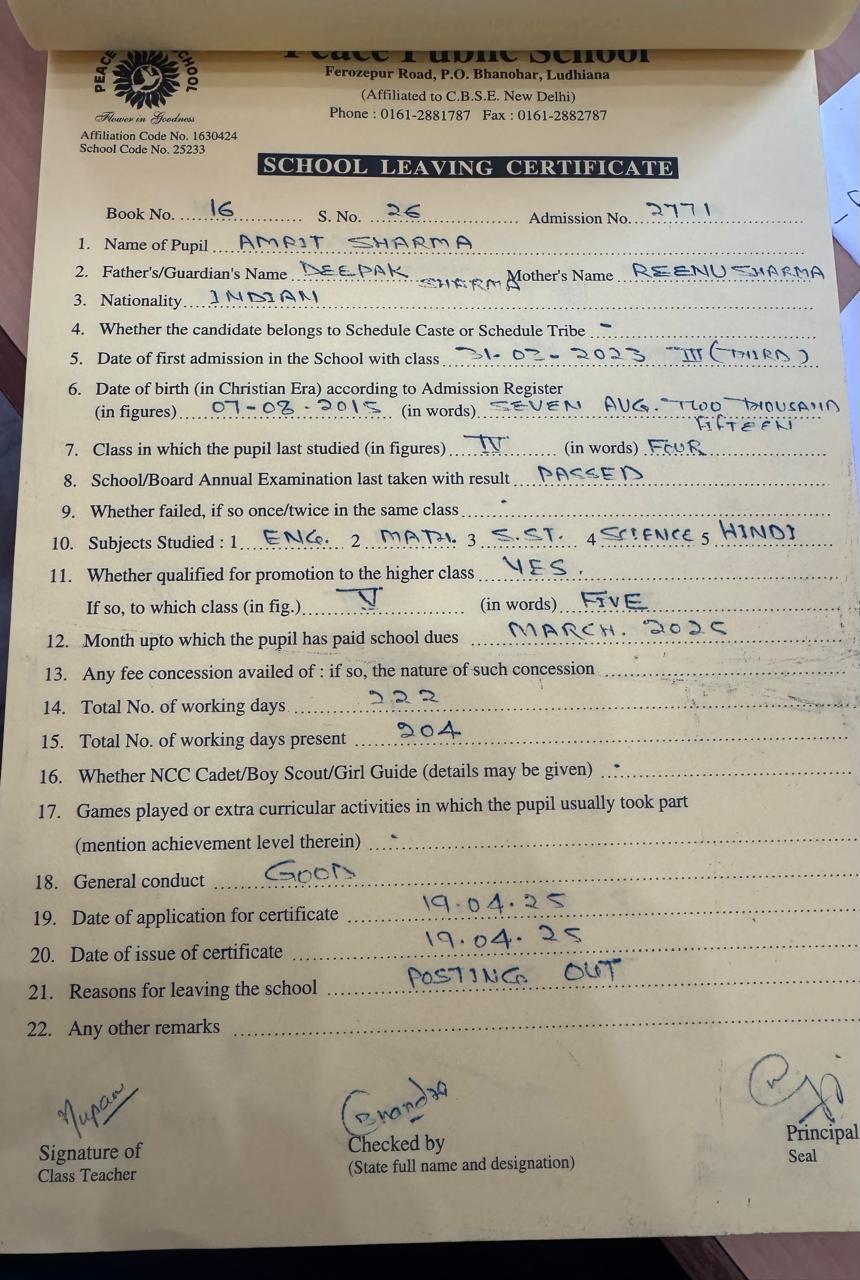 PEACE SCHOOL
Peace Public School
Ferozepur Road, P.O. Bhanohar, Ludhiana
(Affiliated to C.B.S.E. New Delhi)
Phone : 0161-2881787 Fax : 0161-2882787
Flower in Goodness
Affiliation Code No. 1630424
School Code No. 25233
SCHOOL LEAVING CERTIFICATE
Book No. 16 S. No. 26 Admission No. 2771
1. Name of Pupil AMRIT SHARMA
2. Father's/Guardian's Name DEEPAK SHARMA Mother's Name REENU SHARMA
3. Nationality INDIAN
4. Whether the candidate belongs to Schedule Caste or Schedule Tribe -
5. Date of first admission in the School with class 31-03-2023 III (THIRD)
6. Date of birth (in Christian Era) according to Admission Register
(in figures) 07-08-2015 (in words) SEVEN AUG. TWO THOUSAND
FIFTEEN
7. Class in which the pupil last studied (in figures) IV (in words) FOUR
8. School/Board Annual Examination last taken with result PASSED
9. Whether failed, if so once/twice in the same class -
10. Subjects Studied : 1 ENG. 2 MATH. 3 S.ST. 4 SCIENCE 5 HINDI
11. Whether qualified for promotion to the higher class YES.
If so, to which class (in fig.) V (in words) FIVE
12. Month upto which the pupil has paid school dues MARCH. 2025
13. Any fee concession availed of : if so, the nature of such concession
14. Total No. of working days 222
15. Total No. of working days present 204
16. Whether NCC Cadet/Boy Scout/Girl Guide (details may be given) -
17. Games played or extra curricular activities in which the pupil usually took part
(mention achievement level therein) -
18. General conduct GOOD
19. Date of application for certificate 19.04.25
20. Date of issue of certificate 19.04.25
21. Reasons for leaving the school POSTING OUT
22. Any other remarks
Signature of
Class Teacher
Checked by
(State full name and designation)
Principal
Seal